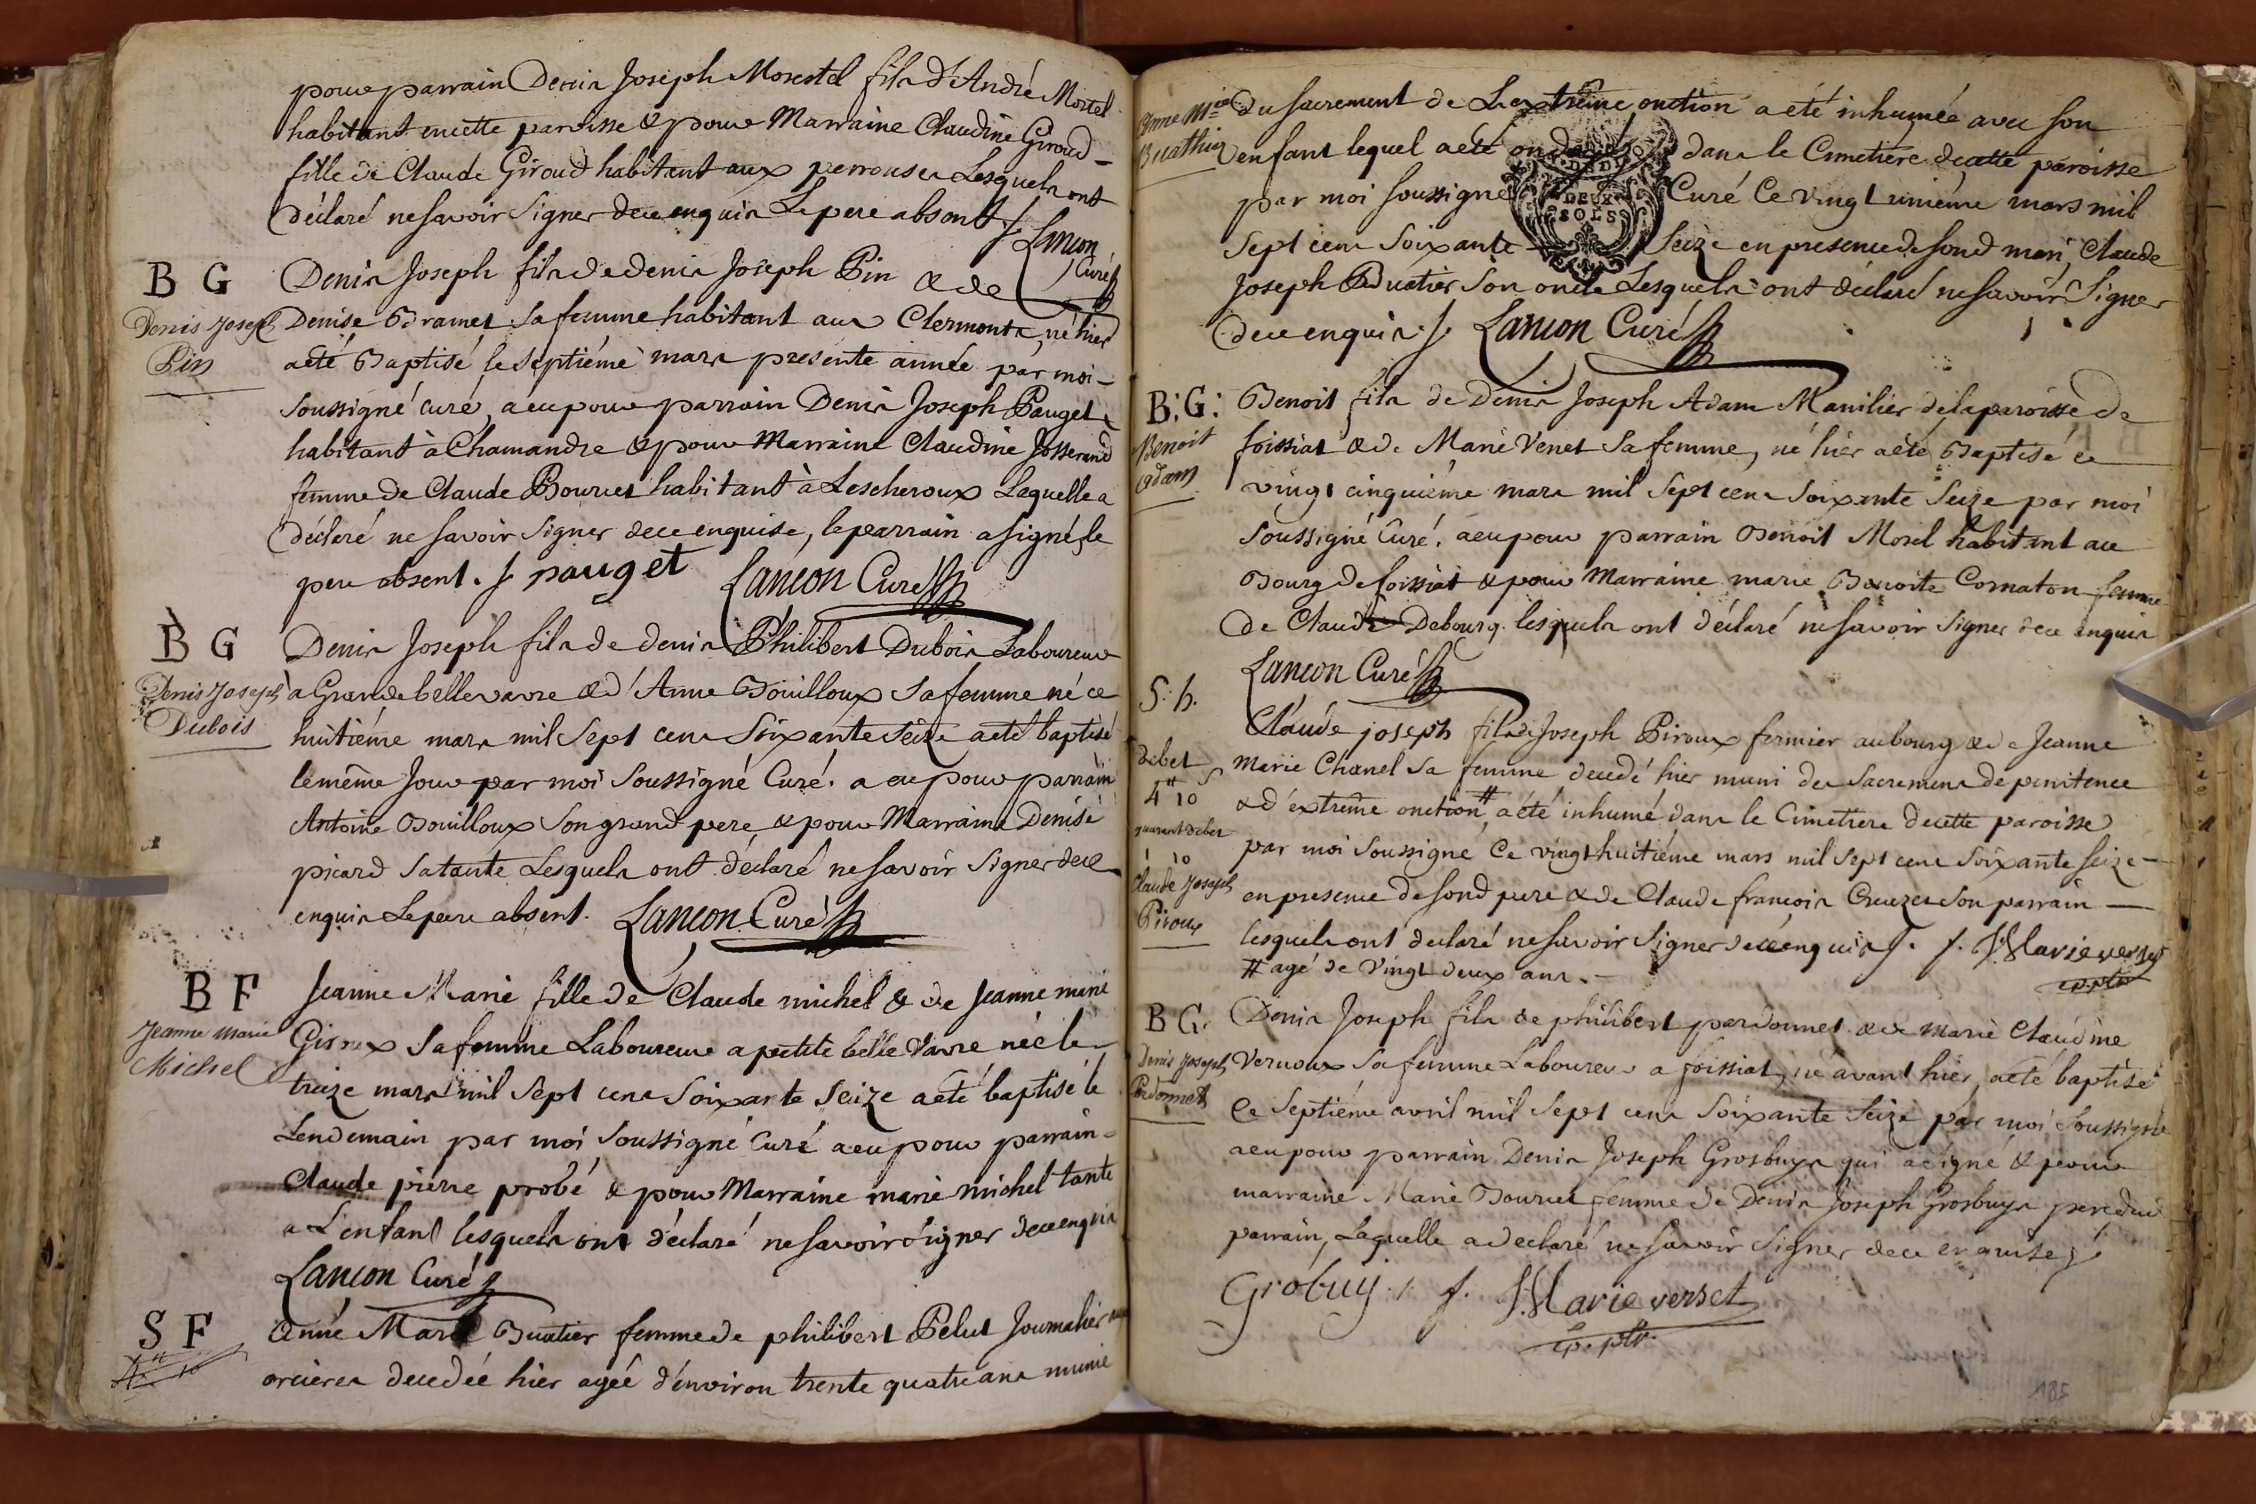 pour parrain Denis Joseph Morestel fils d'André Mortel
habitant en cette paroisse & pour Marraine Claudine Giroud
fille de Claude Giroud habitant aux perrouses Lesquels ont
déclaré ne savoir signer de ce enquis Le pere absent
Lancon Curé
B G
Denis Joseph Pin
Denis Joseph fils de denis Joseph Pin & de
Denise Bramet sa femme habitant aux Clermonts, né hier
a été Baptisé le septiéme mars presente année par moi
soussigné curé, a eu pour parrain Denis Joseph Pauget
habitant à Chamandre & pour Marraine Claudine Josserand
femme de Claude Bourcet habitant à Lescheroux Laquelle a
déclaré ne savoir signer de ce enquise, le parrain a signé, le
pere absent. pauget Lancon Curé
B G
Denis Joseph Dubois
Denis Joseph fils de denis Philibert Dubois Laboureur
a Grande bellevavre & d'Anne Bouilloux sa femme né ce
huitiéme mars mil sept cens soixante seize a été baptisé
le même Jour par moi soussigné Curé. a eu pour parrain
Antoine Bouilloux son grand pere & pour Marraine Denise
picard sa tante Lesquels ont déclaré ne savoir signer de ce
enquis Le pere absent. Lancon Curé
B F
Jeanne Marie Michel
Jeanne Marie fille de Claude michel & de Jeanne marie
Giroux sa femme Laboureur a petite belle vavre née le
treize mars mil sept cens soixante seize a été baptisé le
Lendemain par moi soussigné Curé a eu pour parrain
Claude pierre probé & pour Marraine marie michel tante
a L'enfant lesquels ont déclaré ne savoir signer de ce enquis
Lancon Curé
S F
Anne Marie Buatier femme de philibert Pelus Journalier aux
orcieres decedée hier agée d'environ trente quatre ans munie
Anne Mie Buathier
du sacrement de L'extrême onction a été inhumée avec son
enfant lequel a été ondoyé dans le Cimetière de cette paroisse
DEUX
SOLS
par moi soussigné Curé Ce vingt uniéme mars mil
sept cens soixante seize en presence de son d mari, Claude
Joseph Buatier son oncle Lesquels ont déclaré ne savoir signer
de ce enquis. Lancon Curé
B: G:
Benoit adam
Benoit fils de Denis Joseph Adam Manilier de la paroisse de
foissiat & de Marie Venet sa femme, né hier a été Baptisé ce
vingt cinquiéme mars mil sept cens soixante seize par moi
soussigné Curé. a eu pour parrain Benoit Morel habitant au
Bourg de foissiat & pour Marraine marie Benoite Cornaton femme
de Claude Debourg lesquels ont déclaré ne savoir signer de ce enquis
Lancon Curé
S: h.
debet
4# 10 s
Claude Joseph Piroux
Claude joseph fils de Joseph Piroux fermier au bourg & de Jeanne
Marie Chanel sa femme decedé hier muni des sacremens de penitence
& d'extreme onction # a été inhumé dans le Cimetiere de cette paroisse
par moi soussigné Ce vingt huitiéme mars mil sept cens soixante seize
en presence de son d pere & de Claude francois Creuzet son parrain
lesquels ont declaré ne savoir signer de ce enquis. J. Marie verset
# agé de vingt deux ans. ep. ptr
B G.
Denis Joseph Perdonnet
Denis Joseph fils de philibert perdonnet & de marie Claudine
Vernoux sa femme Laboureur a foissiat, né avant hier, a été baptisé
Ce septiéme avril mil sept cens soixante seize par moi soussigné
a eu pour parrain Denis Joseph Grosbuys qui a signé & pour
marraine Marie Bourcet femme de Denis Joseph Grosbuys pere du d
parrain, Laquelle a declaré ne savoir signer de ce enquise
Grobuy. J. Marie verset
ep. ptr.
185